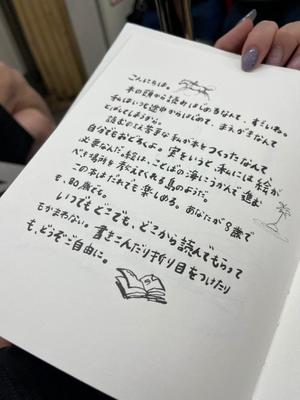 こんにちは。
本の頭から読みはじめるなんて、すごいね。
私はいつも途中からはじめて、まえがきなんて
とばしてしまうから。
読むのは苦手な私が本をつくったなんて
自分でもおどろくよ。実をいうと、私には絵が
必要なんだ。絵は、ことばの海にうかんで、進む
べき場所を教えてくれる島のようだ。
この本はだれでも楽しめる。あなたが8歳で
も、80歳でも。
いつもどこでも、どこから読んでもらって
もかまわない。書きこんだり折り目をつけたり
も、どうぞご自由に。